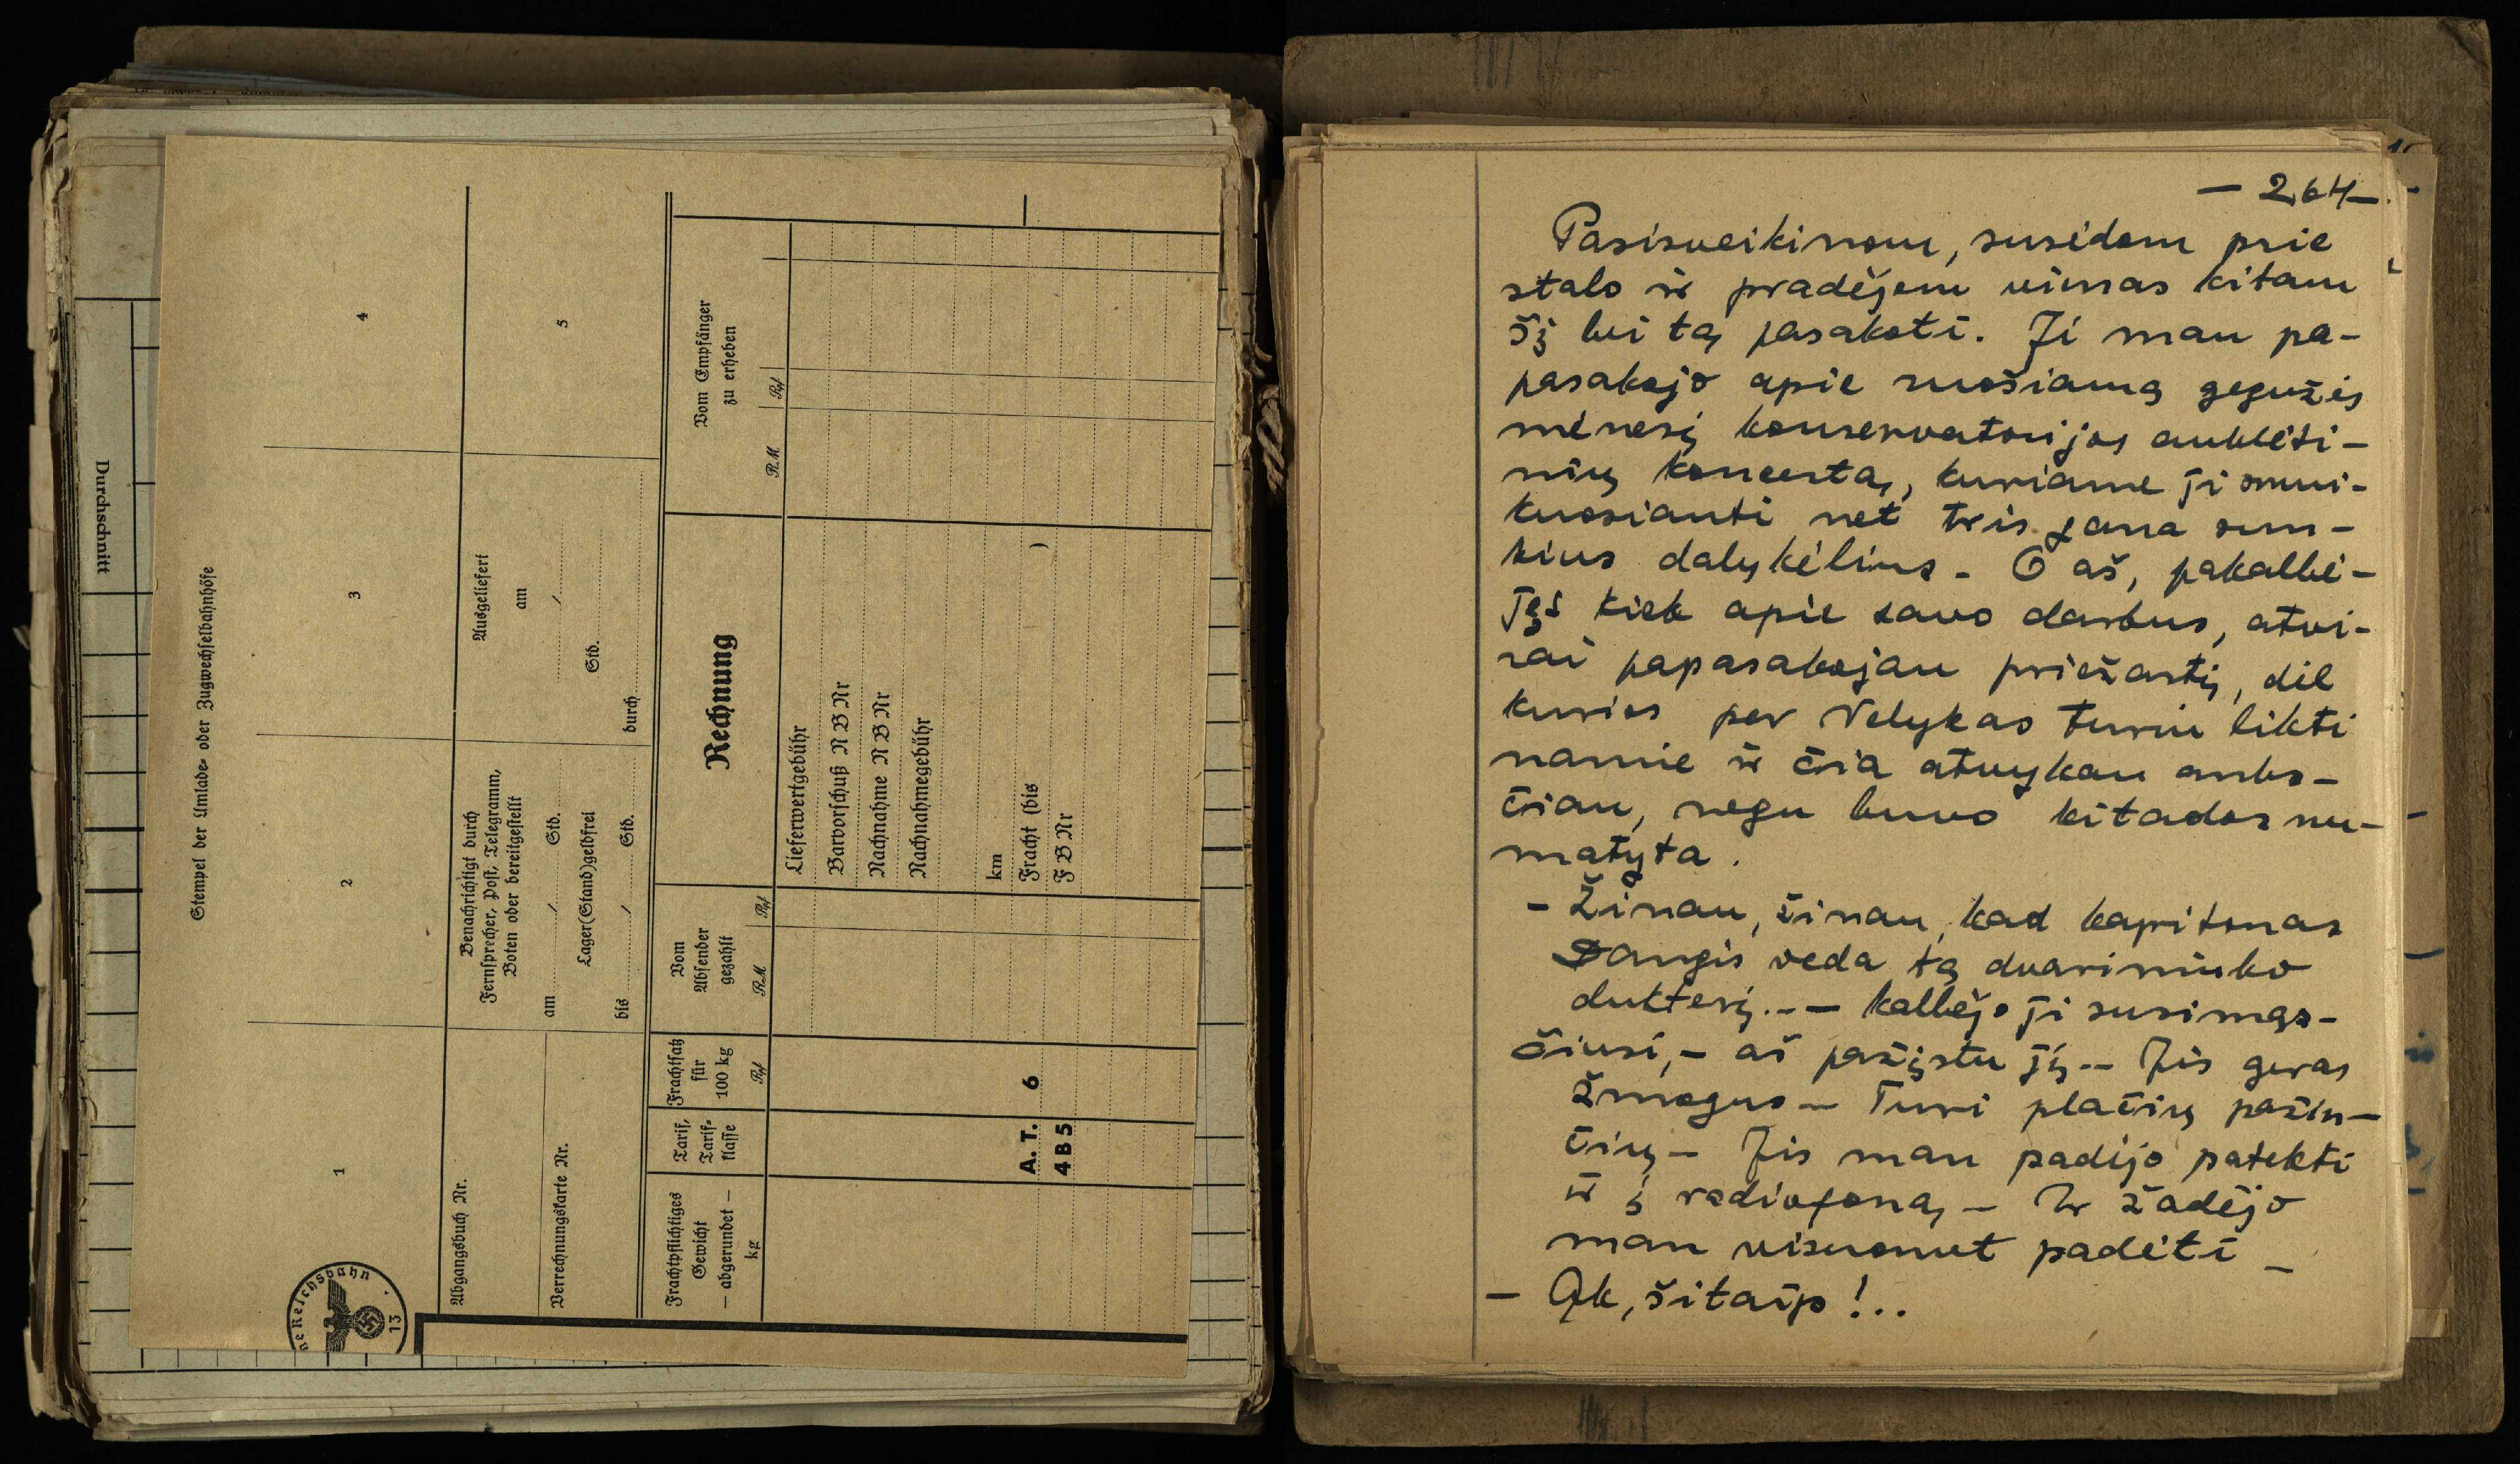 Durchschnitt
Stempel der Umlade- oder Zugwechselbahnhöfe
1
2
3
4
Abgangsbuch Nr.
Verrechnungskarte Nr.
Benachrichtigt durch
Fernsprecher, Post, Telegramm,
Boten oder bereitgestellt
am / Std.
Lager(Stand)geldfrei
bis / Std.
Ausgeliefert
am
/
Std.
durch
5
Frachtpflichtiges
Gewicht
— abgerundet —
kg
Tarif,
Tarif-
klasse
Frachtsatz
für
100 kg
Rpf
Vom
Absender
gezahlt
RM Rpf
Rechnung
Vom Empfänger
zu erheben
RM Rpf
Lieferwertgebühr
Barvorschuß N B Nr
Nachnahme N B Nr
Nachnahmegebühr
km
A. T. 6 Fracht (bis )
4 B 5 F B Nr
ne Reichsbahn
13
— 264 —
Pasisveikinom, susėdom prie
stalo ir pradėjom vienas kitam
šį bei tą pasakoti. Ji man pa-
pasakojo apie ruošiamą gegužės
mėnesį konservatorijos auklėti-
nių koncertą, kuriame ji smui-
kuosianti net tris gana sun-
kius dalykėlius. O aš, pakalbė-
jęs kiek apie savo darbus, atvi-
rai papasakojau priežastį, dėl
kurios per Velykas turiu likti
namie ir čia atvykau anks-
čiau, negu buvo kitados nu-
matyta.
- Žinau, žinau, kad kapitonas
Dangis veda tą dvarininko
dukterį... — kalbėjo ji susimąs-
čiusi, - aš pažįstu jį... Jis geras
žmogus... Turi plačių pažin-
čių... Jis man padėjo patekti
ir į radiofoną... Ir žadėjo
man visuomet padėti...
— Ak, šitaip!..